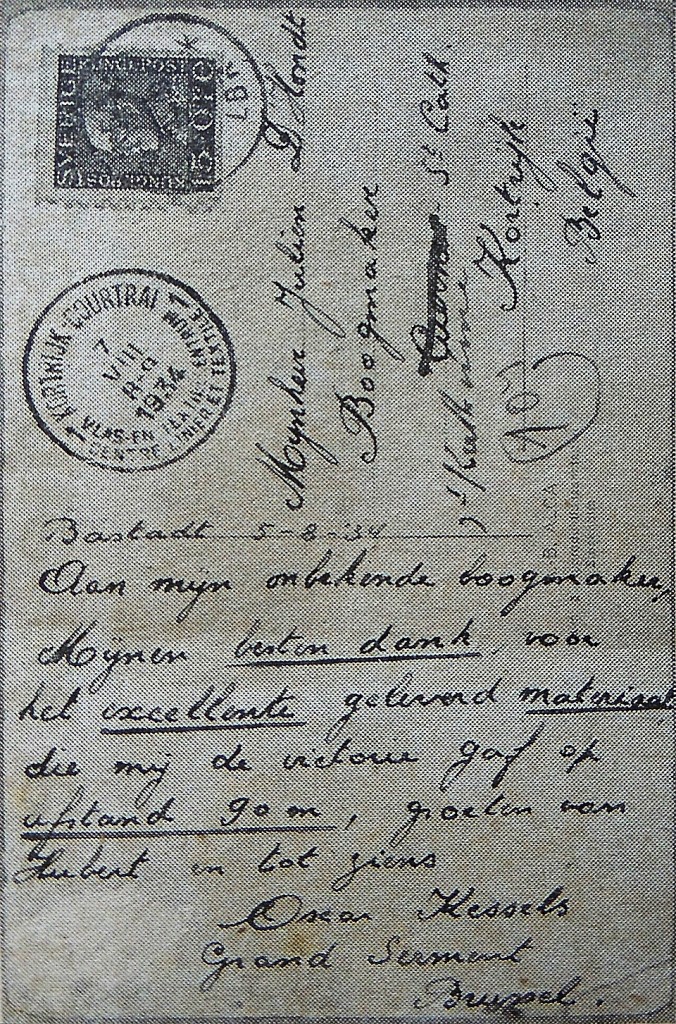 SVERIGE
KORTRIJK-COURTRAI
7
VIII
1934
VLAS-EN
CENTRE LINIER ET TEXTILE
Mynheer Julien D'Hondt
Boogmaker
St Cath.
Kortrijk
België
Båstadt 5-8-34
Aan mijn onbekende boogmaker,
Mijnen besten dank voor
het excellente geleverd materiaal
die mij de victorie gaf op
afstand 90 m, groeten van
Hubert en tot ziens
Oscar Kessels
Grand Serment
Brussel.